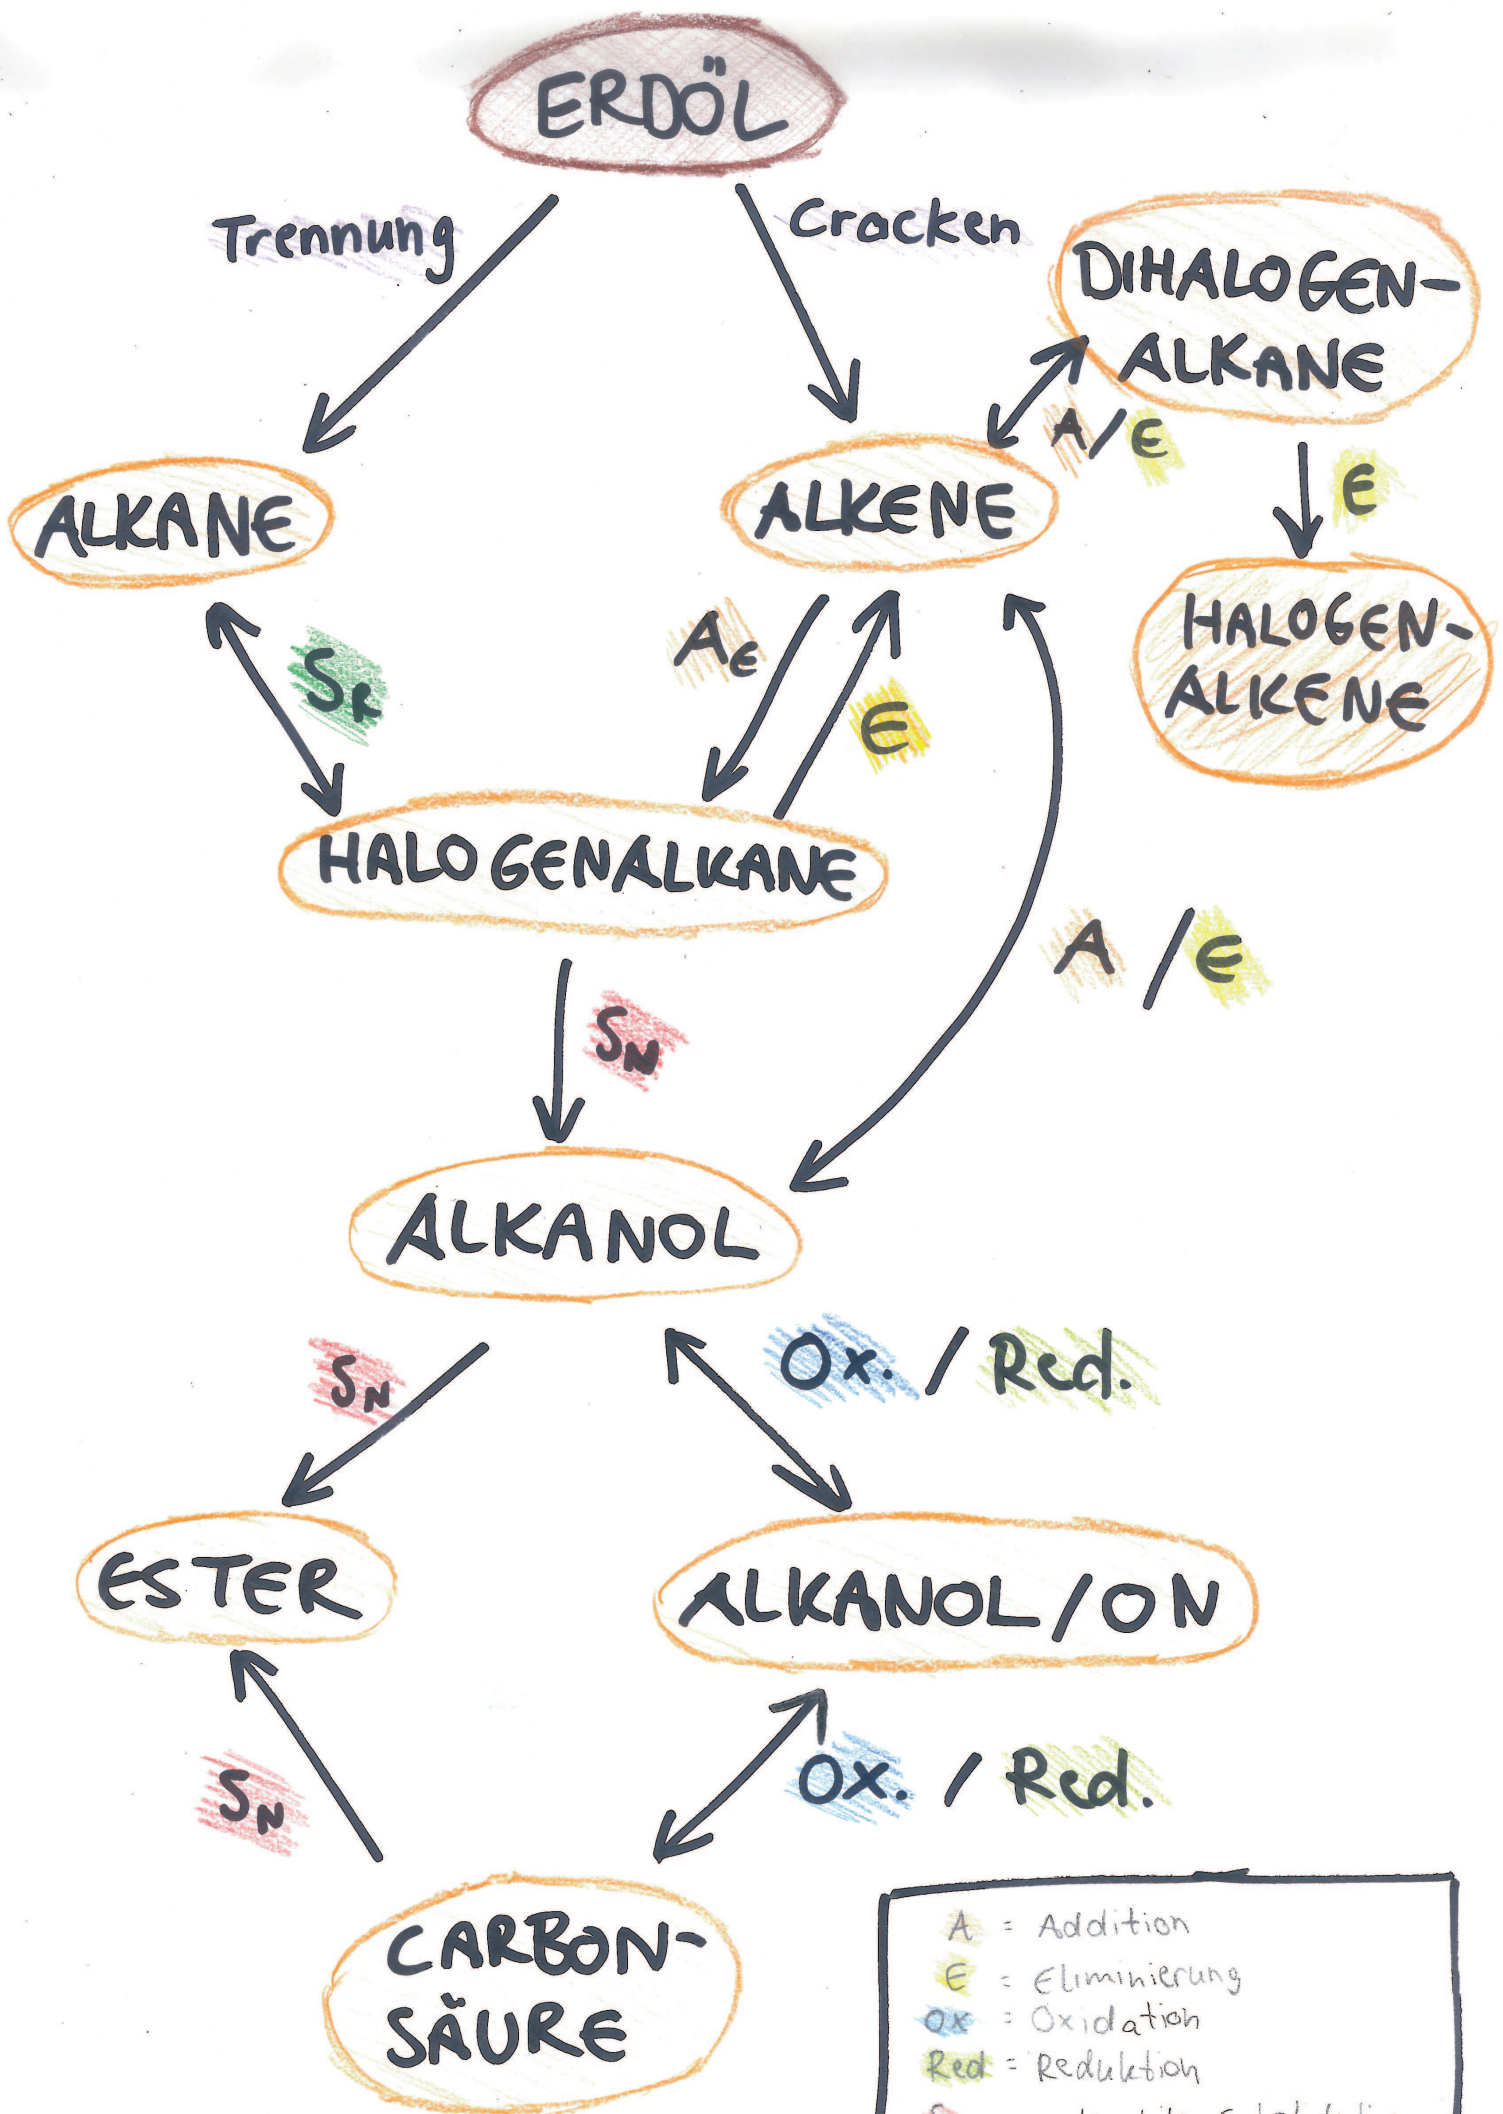 ERDÖL
Trennung
Cracken
DIHALOGEN-
ALKANE
A/E
E
ALKANE
ALKENE
HALOGEN-
ALKENE
SR
AE
E
HALOGENALKANE
A / E
SN
ALKANOL
SN
Ox. / Red.
ESTER
ALKANOL/ON
SN
Ox. / Red.
CARBON-
SÄURE
A = Addition
E = Eliminierung
Ox = Oxidation
Red = Reduktion